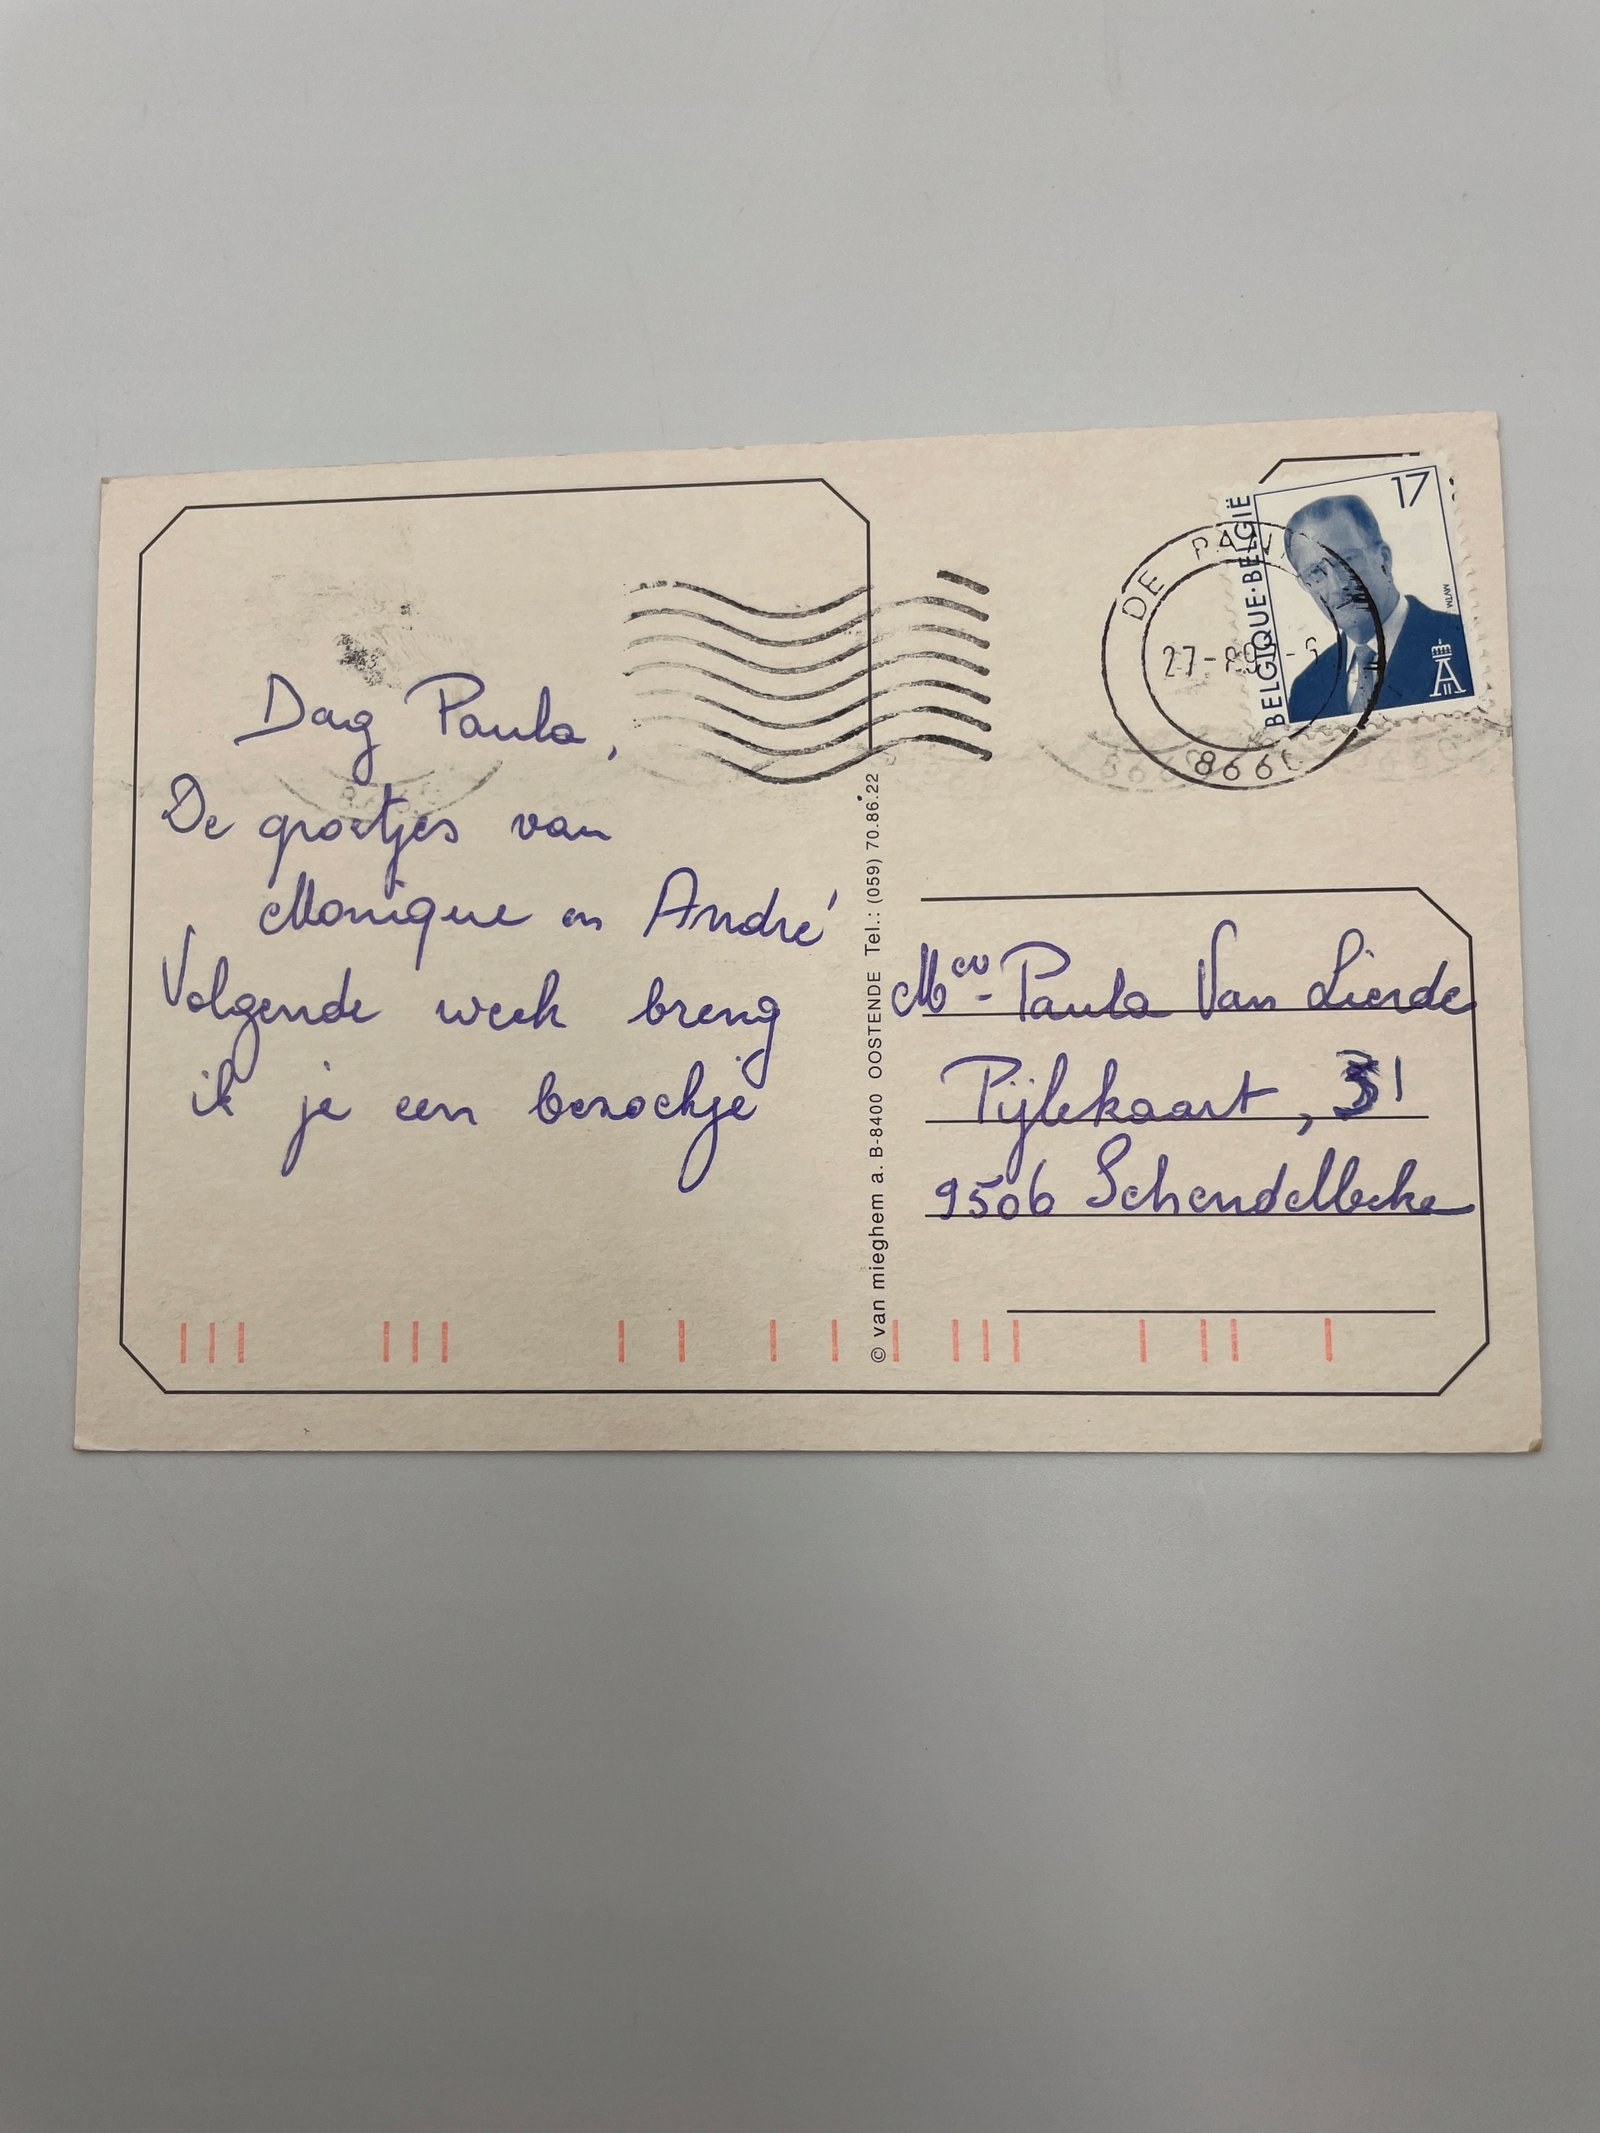 Dag Paula,
De groetjes van
Monique en André
Volgende week breng
ik je een bezoekje
© van mieghem a. B-8400 OOSTENDE Tel.: (059) 70.86.22
17
BELGIQUE·BELGIË
MVTM
DE PANNE
27-
8660
Mev - Paula Van Lierde
Pijlekaart, 31
9506 Schendelbeke